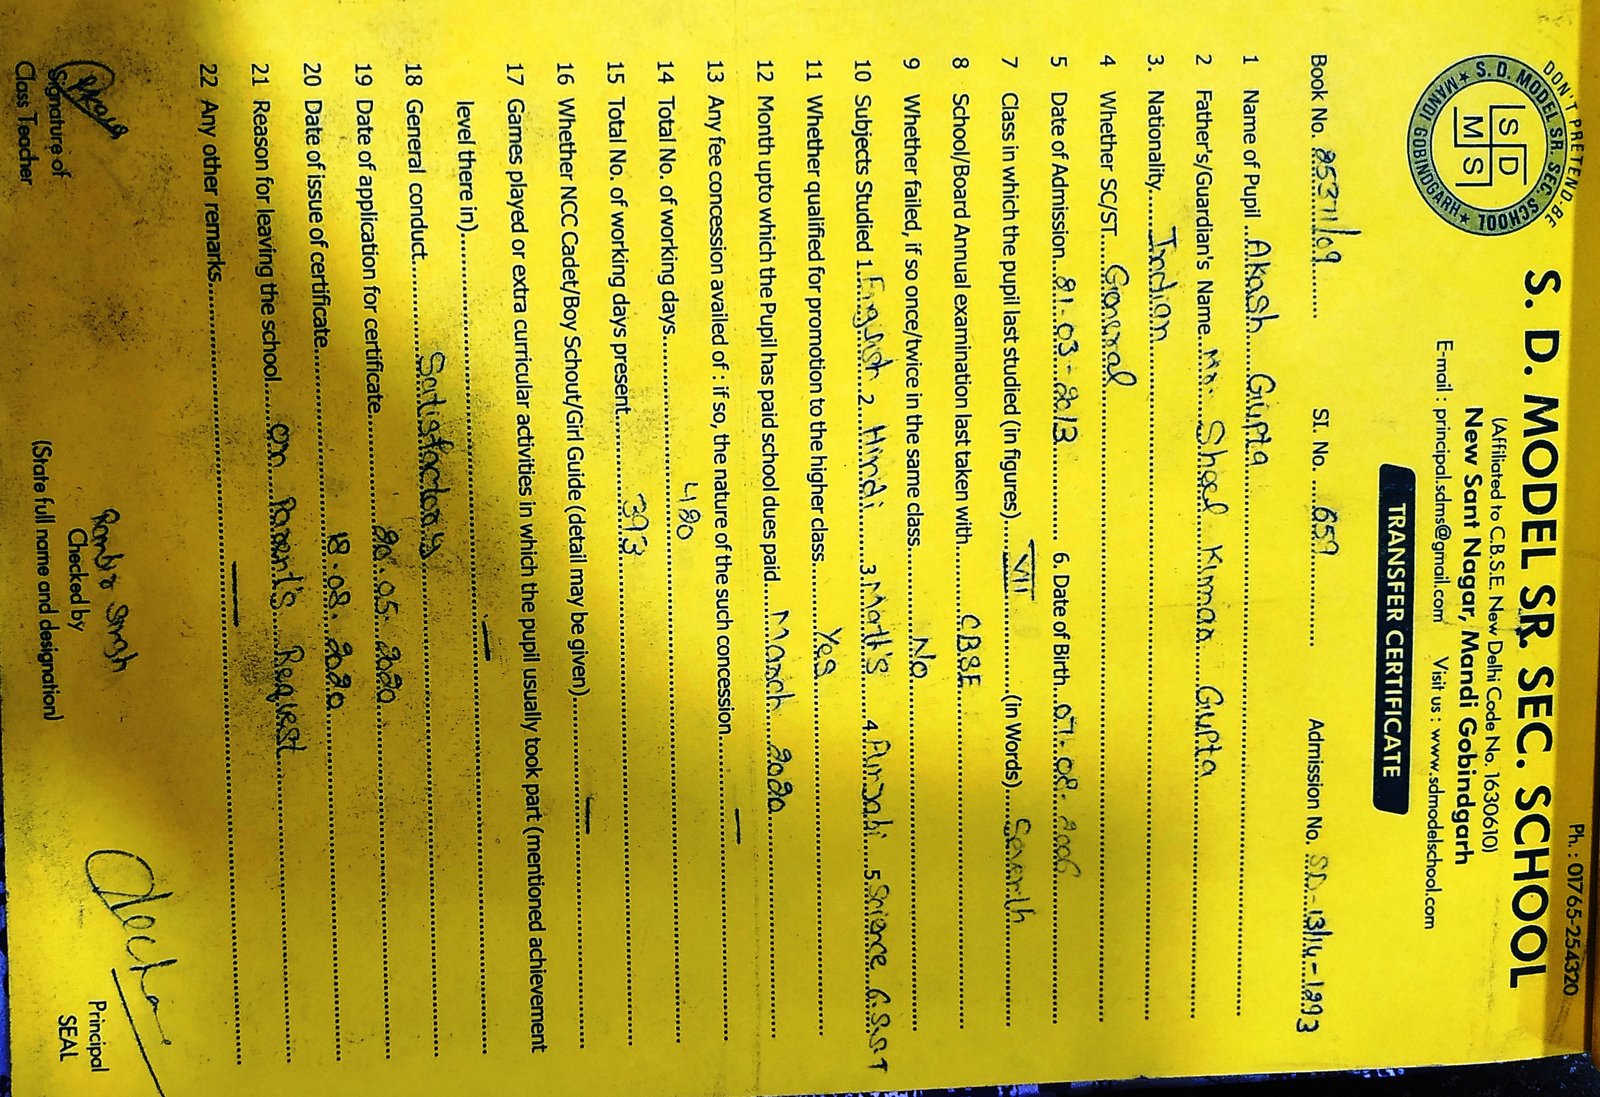 Ph. : 01765-254320
DON'T PRETEND-BE
S. D. MODEL SR. SEC. SCHOOL
MANDI GOBINDGARH
S D M S
S. D. MODEL SR. SEC. SCHOOL
(Affiliated to C.B.S.E. New Delhi Code No. 1630610)
New Sant Nagar, Mandi Gobindgarh
E-mail : principal.sdms@gmail.com Visit us : www.sdmodelschool.com
TRANSFER CERTIFICATE
Book No. SI. No. 659 Admission No. SD-13/14-1293
1 Name of Pupil Akash Gupta
2 Father's/Guardian's Name Mr. Sheel Kumar Gupta
3. Nationality Indian
4 Whether SC/ST General
5 Date of Admission 21-03-2013 6. Date of Birth 07-08-2006
7 Class in which the pupil last studied (in figures) VII (in Words) Seventh
8 School/Board Annual examination last taken with CBSE
9 Whether failed, if so once/twice in the same class No
10 Subjects Studied 1. English 2 Hindi 3. Math's 4. Punjabi 5 Science 6. S.ST
11 Whether qualified for promotion to the higher class Yes
12 Month upto which the Pupil has paid school dues paid March 2020
13 Any fee concession availed of : if so, the nature of the such concession —
14 Total No. of working days 420
15 Total No. of working days present 393
16 Whether NCC Cadet/Boy Schout/Girl Guide (detail may be given) —
17 Games played or extra curricular activities in which the pupil usually took part (mentioned achievement
level there in) —
18 General conduct Satisfactory
19 Date of application for certificate 20.05.2020
20 Date of issue of certificate 18.08.2020
21 Reason for leaving the school On Parent's Request
22 Any other remarks —
Singh
Signature of Checked by Principal
Class Teacher (State full name and designation) SEAL